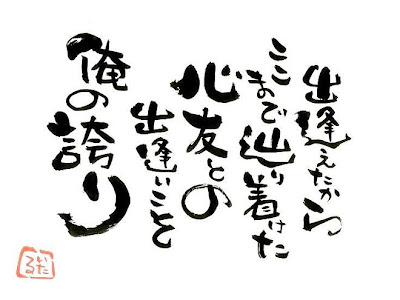 出逢えたから
ここまで辿り着けた
心友との
出逢いこそ
俺の誇り